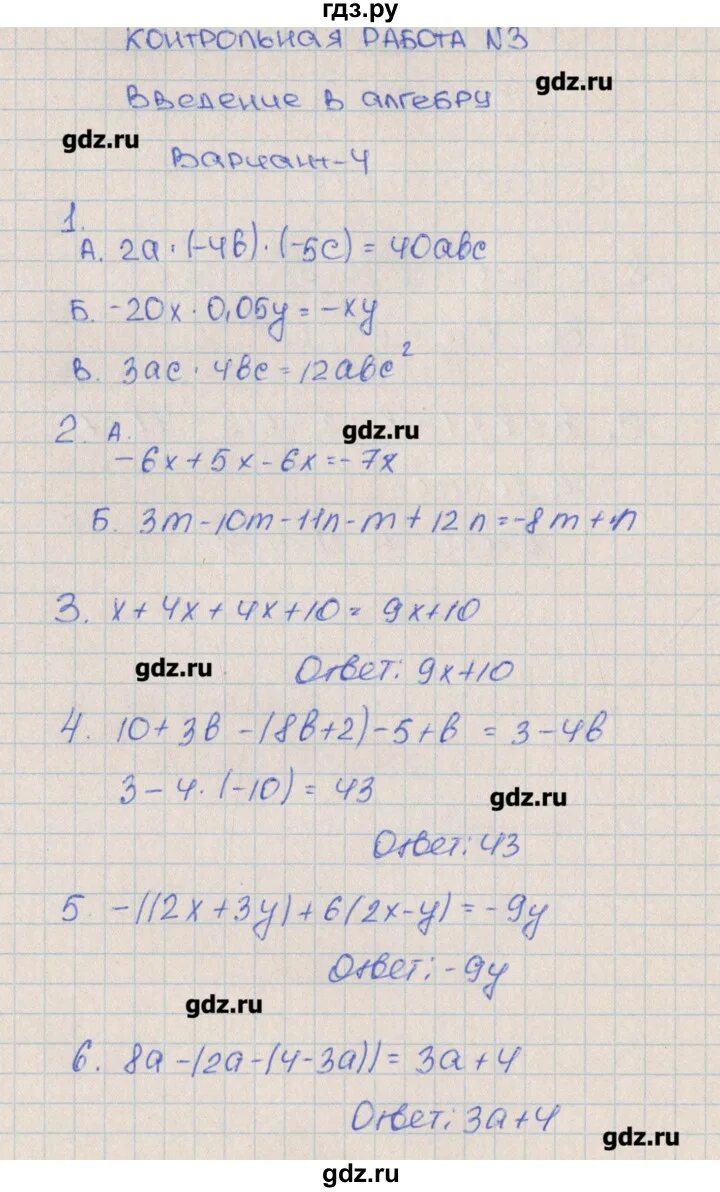 гдз.ру
КОНТРОЛЬНАЯ РАБОТА N3
gdz.ru
Введение в алгебру
gdz.ru
Вариант-4
1.
А. 2a·(-4b)·(-5c)=40abc
Б. -20x·0,05y=-xy
В. 3ac·4bc=12abc²
2. А.
gdz.ru
-6x+5x-6x=-7x
Б. 3m-10m-11n-m+12n=-8m+n
3. x+4x+4x+10=9x+10
gdz.ru
Ответ: 9x+10
4. 10+3b-(8b+2)-5+b=3-4b
3-4·(-10)=43
gdz.ru
Ответ: 43
5. -(12x+3y)+6(2x-y)=-9y
Ответ: -9y
gdz.ru
6. 8a-(2a-(4-3a))=3a+4
Ответ: 3a+4
gdz.ru
gdz.ru